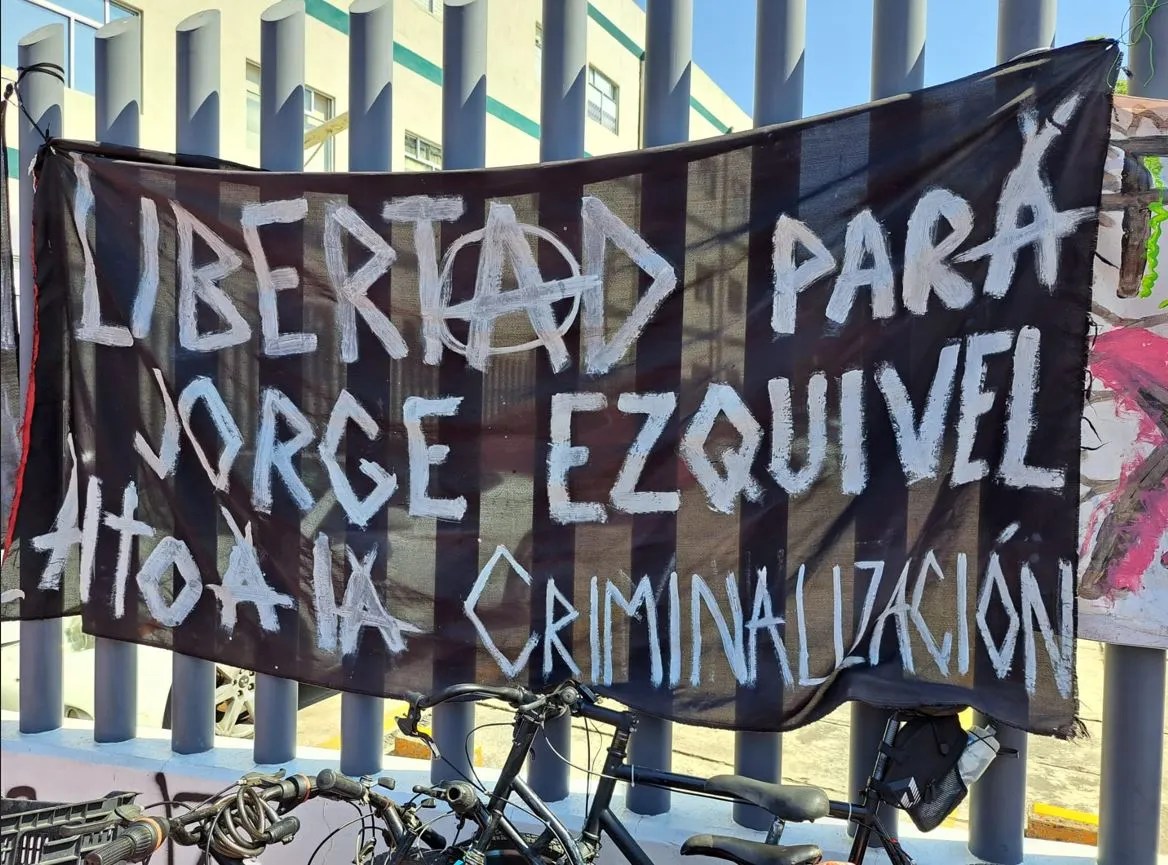 LIBERTAD PARA
JORGE EZQUIVEL
Alto A lA CRIMINALIZACIÓN